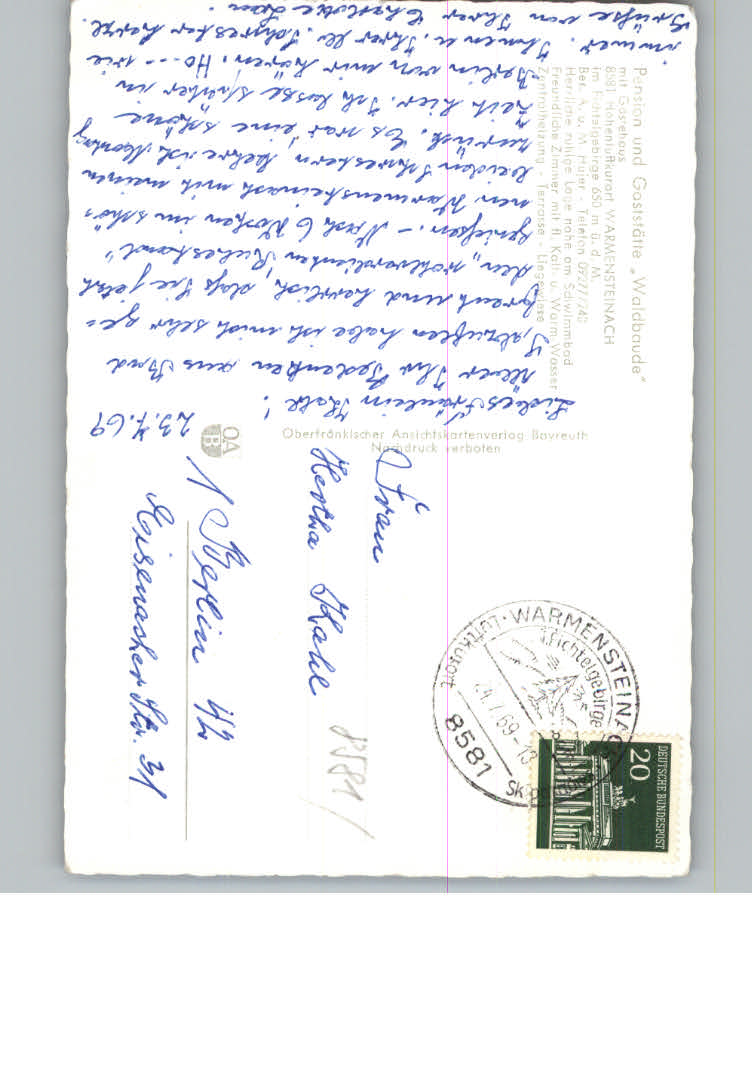 Pension und Gaststätte „Waldbaude"
mit Gästehaus
8581 Höhenluftkurort WARMENSTEINACH
im Fichtelgebirge 680 m ü. d. M.
Bes. A. u. M. Hujer - Telefon 09277/240
Herrliche ruhige Lage nahe am Schwimmbad
Freundliche Zimmer mit fl. Kalt- u. Warm-Wasser
Zentralheizung - Terrasse - Liegewiese
23.7.69
Liebes Fräulein Kahl!
Über Ihr Gedenken aus Bad
Salzuflen habe ich mich sehr ge=
freut und herrlich, daß Sie jetzt
den „wohlverdienten Ruhestand"
genießen. – Nach 6 Wochen im schö-
nen Warmensteinach mit meinen
beiden Schwestern kehre ich Montag
heim. Es war eine schöne
Zeit hier. Ich lasse später in
Berlin von mir hören. Ho--- wie
immer. Ihnen u. Ihrer lb. Schwester herzl.
Grüße von Ihrer Charlotte
Oberfränkischer Ansichtskartenverlag Bayreuth
Nachdruck verboten
OA
B
Frau
Hertha Kahl
1 Berlin 42
Eisenacher Str. 31
8581/
DEUTSCHE BUNDESPOST
20
8581 WARMENSTEINACH
i. Fichtelgebirge
Luftkurort
24.7.69-13